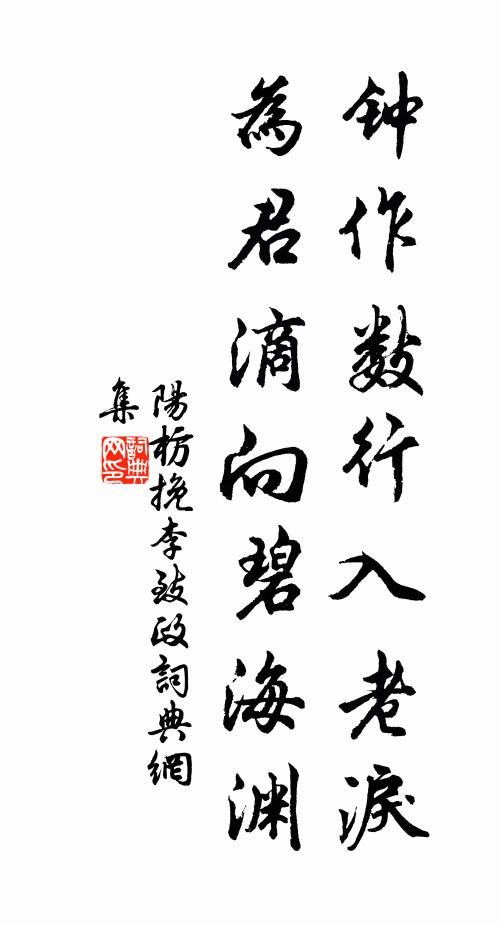 钟作数行入老淚
為君滴向碧海渊
陽枋挽李致政詞典網
集
詞典网印